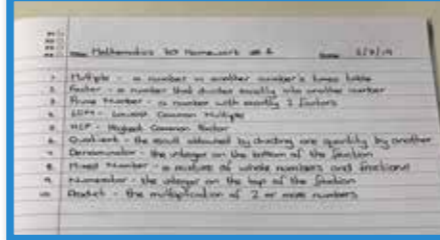 Mathematics Homework # 1
1. Multiple - a number in another number's times table
2. Factor - a number that divides exactly into another number
3. Prime Number - a number with exactly 2 factors
4. LCM - Lowest Common Multiple
5. HCF - Highest Common Factor
6. Quotient - the result obtained by dividing one quantity by another
7. Denominator - the integer on the bottom of the fraction
8. Mixed Number - a mixture of whole numbers and fractions
9. Numerator - the integer on the top of the fraction
10. Product - the multiplication of 2 or more numbers